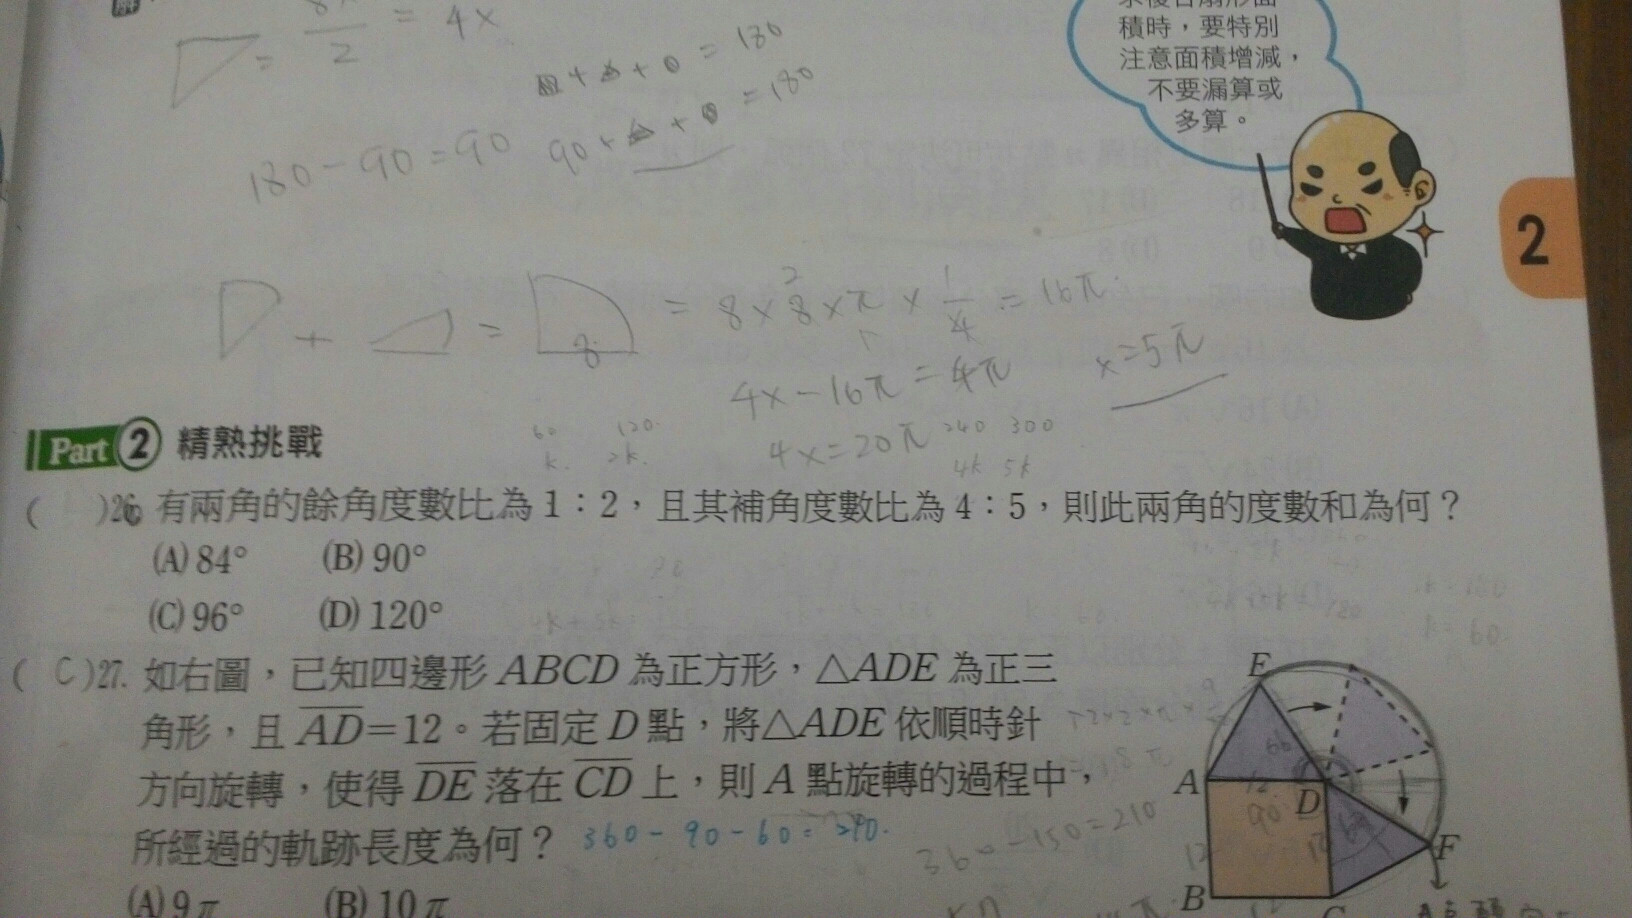 積時，要特別
注意面積增減，
不要漏算或
多算。
= 4x
2
180-90=90
= 180
90+
= 180
2
+ = 8×8×π×1/4=16π
8
4x-16π=4π
x=5π
4x=20π
60 120 240 300
k. 2k. 4k 5k
Part 2 精熟挑戰
( )26. 有兩角的餘角度數比為1：2，且其補角度數比為4：5，則此兩角的度數和為何？
(A) 84° (B) 90°
(C) 96° (D) 120°
( C )27. 如右圖，已知四邊形 ABCD 為正方形，△ADE 為正三
角形，且 AD=12。若固定 D 點，將△ADE 依順時針
方向旋轉，使得 DE 落在 CD 上，則 A 點旋轉的過程中，
所經過的軌跡長度為何？ 360-90-60=210.
360-150=210
(A) 9π (B) 10π
E
A
D
12
90
F
B